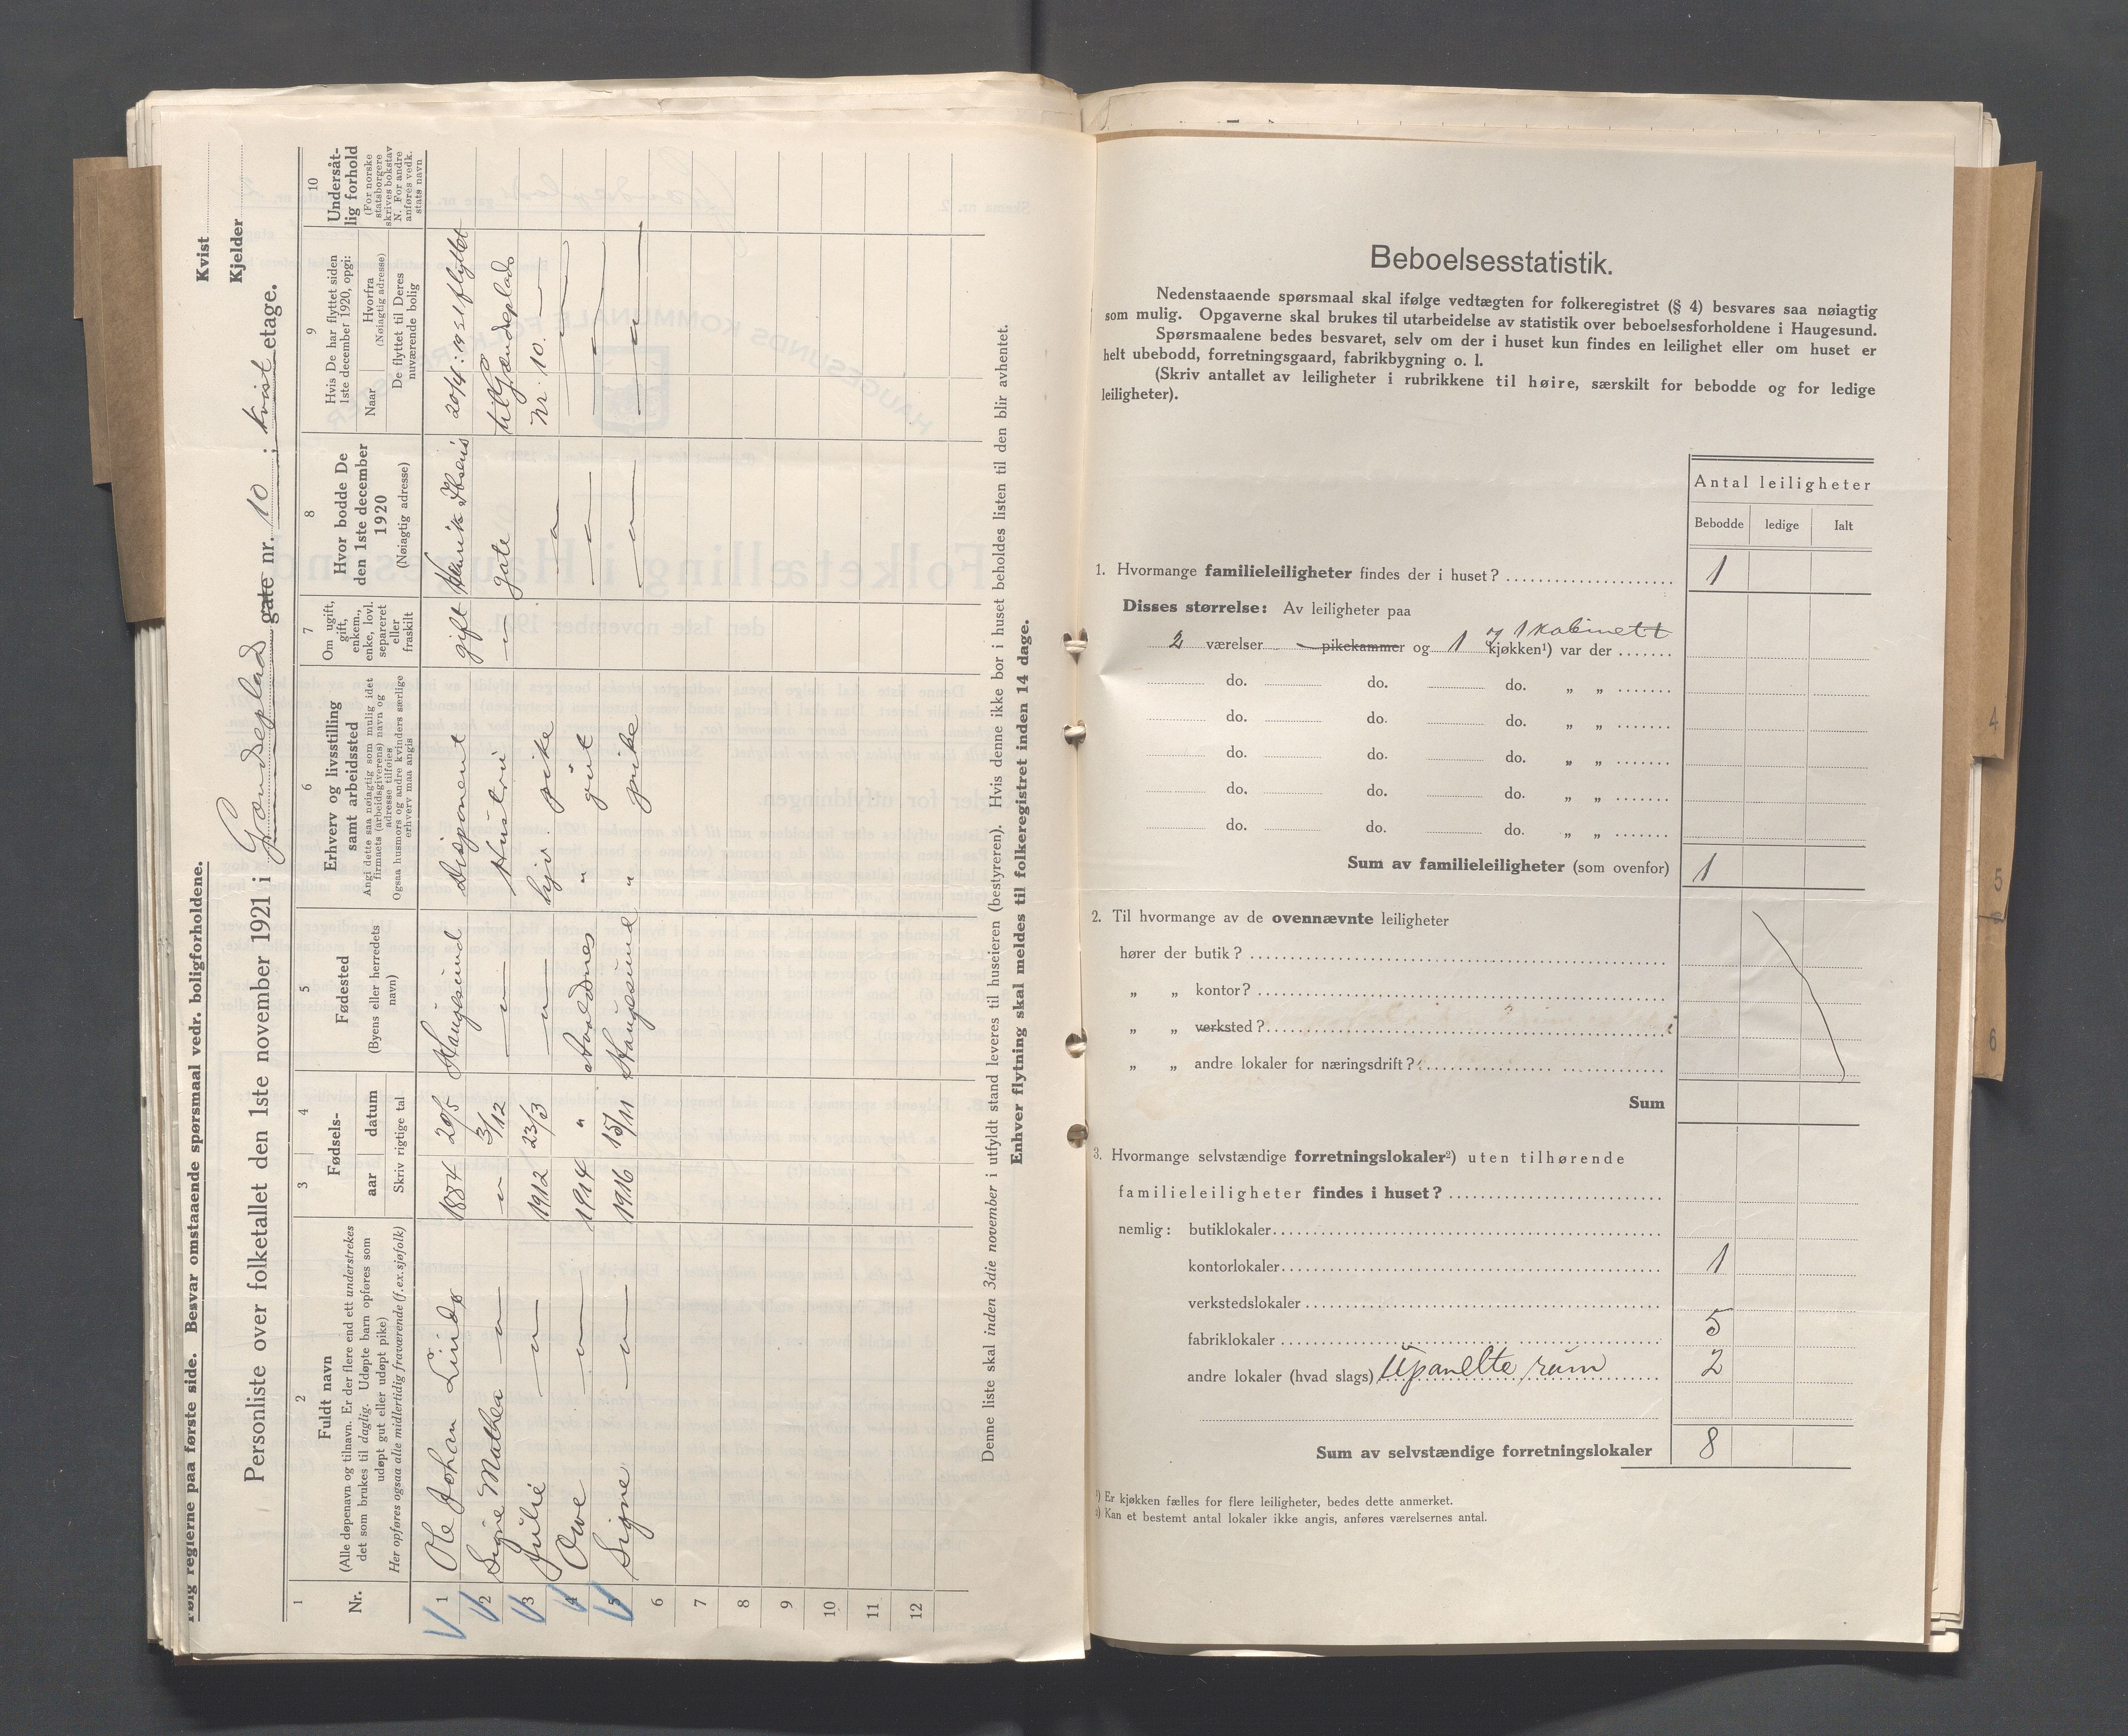 Følg reglerne paa første side. Besvar omstaaende spørsmaal vedr. boligforholdene.
Kvist
Kjelder
Personliste over folketallet den 1ste november 1921 i Grændseplads gate nr. 10 ; kvist etage.
1
2
3
4
5
6
7
8
9
10
Nr.
Fuldt navn
(Alle døpenavn og tilnavn. Er der flere end ett understrekes
det som brukes til daglig. Udøpte barn opføres som
udøpt gut eller udøpt pike)
Her opføres ogsaa alle midlertidig fraværende (f.ex. sjøfolk)
Fødsels-
aar
datum
Skriv rigtige tal
Fødested
(Byens eller herredets
navn)
Erhverv og livsstilling
samt arbeidssted
Angi dette saa nøiagtig som mulig idet
firmaets (arbeidsgiverens) navn og
adresse tilføies
Ogsaa husmors og andre kvinders særlige
erhverv maa angis
Om ugift,
gift,
enkem.,
enke, lovl.
separeret
eller
fraskilt
Hvor bodde De
den 1ste december
1920
(Nøiagtig adresse)
Hvis De har flyttet siden
1ste december 1920, opgi:
Naar
Hvorfra
(Nøiagtig adresse)
De flyttet til Deres
nuværende bolig
Undersåt-
lig forhold
(For norske
statsborgere
skrives bokstav
N. For andre
anføres vedk.
stats navn
1 Ole Johan Lindø 1884 20/5 Haugesund Disponent gift Henrik Ibsens 20/4: 1921 flyttet
2 Signe Mathea — " — " 3/12 — " — Hustru — " — gate til Grændseplads
3 Julie — " — 1912 23/3 — " — hjv. pike — " — Nr. 10. —
4 Owe — " — 1914 " Avaldsnes " gut — " — — " —
5 Signe — " — 1916 15/11 Haugesund " pike — " — — " —
6
7
8
9
10
11
12
Denne liste skal inden 3die november i utfyldt stand leveres til huseieren (bestyreren). Hvis denne ikke bor i huset beholdes listen til den blir avhentet.
Enhver flytning skal meldes til folkeregistret inden 14 dage.
Beboelsesstatistik.
Nedenstaaende spørsmaal skal ifølge vedtægten for folkeregistret (§ 4) besvares saa nøiagtig
som mulig. Opgaverne skal brukes til utarbeidelse av statistik over beboelsesforholdene i Haugesund.
Spørsmaalene bedes besvaret, selv om der i huset kun findes en leilighet eller om huset er
helt ubebodd, forretningsgaard, fabrikbygning o. l.
(Skriv antallet av leiligheter i rubrikkene til høire, særskilt for bebodde og for ledige
leiligheter).
Antal leiligheter
Bebodde ledige Ialt
1. Hvormange familieleiligheter findes der i huset? 1
Disses størrelse: Av leiligheter paa
og 1 kabinett
2 værelser pikekammer og 1 kjøkken¹) var der
do. do. do. „ „
do. do. do. „ „
do. do. do. „ „
do. do. do. „ „
do. do. do. „ „
Sum av familieleiligheter (som ovenfor) 1
2. Til hvormange av de ovennævnte leiligheter
hører der butik?
„ „ kontor?
„ „ verksted?
„ „ andre lokaler for næringsdrift?
Sum
3. Hvormange selvstændige forretningslokaler²) uten tilhørende
familieleiligheter findes i huset?
nemlig: butiklokaler
kontorlokaler 1
verkstedslokaler
fabriklokaler 5
andre lokaler (hvad slags) Upanelte rum 2
Sum av selvstændige forretningslokaler 8
¹) Er kjøkken fælles for flere leiligheter, bedes dette anmerket.
²) Kan et bestemt antal lokaler ikke angis, anføres værelsernes antal.
4
5
6